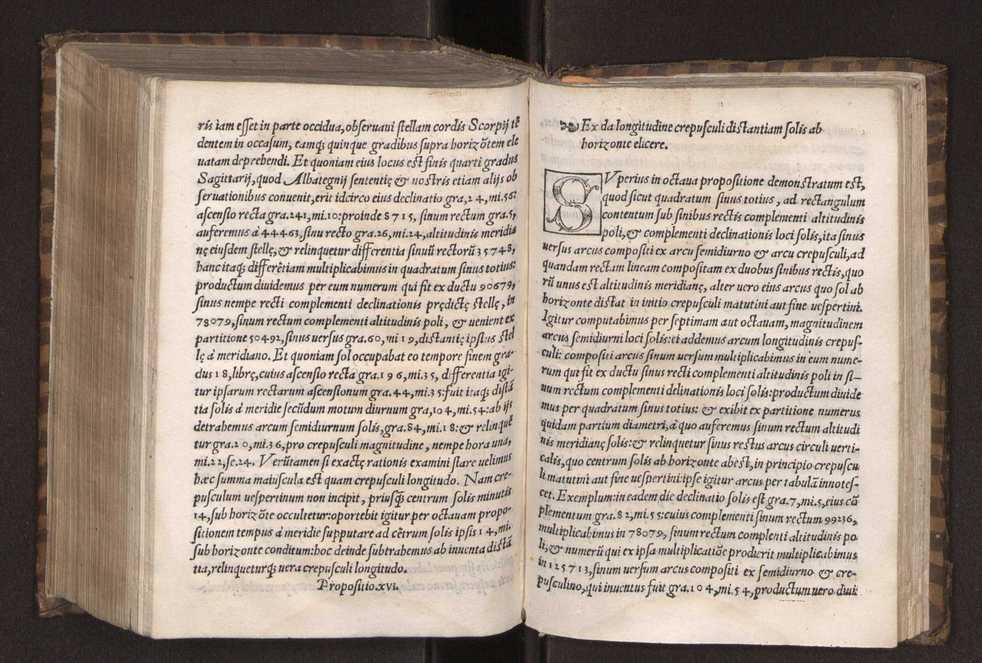 ris iam esset in parte occidua, obseruaui stellam cordis Scorpij tẽ
dentem in occasum, eamq; quinque gradibus supra horizõtem ele
uatam deprehendi. Et quoniam eius locus est finis quarti gradus
Sagittarij, quod Albategnij sententię & nostris etiam alijs ob
seruationibus conuenit, erit idcirco eius declinatio gra,24, mi.56:
ascensio recta gra.241, mi.10: proinde 8715, sinum rectum gra.5,
auferemus à 44463, sinu recto gra.26, mi.24, altitudinis meridia
nę eiusdem stellę, & relinquetur differentia sinuũ rectorũ 35748,
hanc itaq; differẽtiam multiplicabimus in quadratum sinus totius:
productum diuidemus per eum numerum qui fit ex ductu 90679,
sinus nempe recti complementi declinationis prędictę stellę, in
78079, sinum rectum complementi altitudinis poli, & uenient ex
partitione 50492, sinus uersus gra.60, mi 19, distantię ipsius stel
lę à meridiano. Et quoniam sol occupabat eo tempore finem gra-
dus 18, librę, cuius ascensio recta gra.196, mi.35, differentia igi-
tur ipsarum rectarum ascensionum gra.44, mi.35: fuit itaq; distã
tia solis à meridie secũdum motum diurnum gra,104, mi.54: ab ijs
detrahemus arcum semidiurnum solis, gra.84, mi.18: & relinquẽ
tur gra.20, mi.36, pro crepusculi magnitudine, nempe hora una,
mi.22, se.24. Verũtamen si exactę rationis examini stare uelimus
hæc summa maiuscula est quam crepusculi longitudo. Nam cre-
pusculum uespertinum non incipit, priusq̃ centrum solis minutis
14, sub horizõte occultetur: oportebit igitur per octauam propo-
sitionem tempus à meridie supputare ad cẽtrum solis ipsis 14, mi.
sub horizonte conditum: hoc deinde subtrahemus ab inuenta distã
tia, relinqueturq; uera crepusculi longitudo.
Propositio.xvi.
Ex da longitudine crepusculi distantiam solis ab
horizonte elicere.
SVperius in octaua propositione demonstratum est,
quod sicut quadratum sinus totius, ad rectangulum
contentum sub sinibus rectis complementi altitudinis
poli, & complementi declinationis loci solis, ita sinus
uersus arcus compositi ex arcu semidiurno & arcu crepusculi, ad
quandam rectam lineam compositam ex duobus sinibus rectis, quo
rũ unus est altitudinis meridianę, alter uero eius arcus quo sol ab
horizonte distat in initio crepusculi matutini aut fine uespertini.
Igitur computabimus per septimam aut octauam, magnitudinem
arcus semidiurni loci solis: ei addemus arcum longitudinis crepus-
culi: compositi arcus sinum uersum multiplicabimus in eum nume-
rum qui fit ex ductu sinus recti complementi altitudinis poli in si-
num rectum complementi delinationis loci solis: productum diuide
mus per quadratum sinus totius: & exibit ex partitione numerus
quidam partium diametri, à quo auferemus sinum rectum altitudi
nis meridianę solis: & relinquetur sinus rectus arcus circuli uerti-
calis, quo centrum solis ab horizonte abest, in principio crepuscu
li matutini aut fine uespertini: ipse igitur arcus per tabulã innotes-
cet. Exemplum: in eadem die declinatio solis est gra.7, mi.5, eius cõ
plementum gra.82, mi.55: cuius complementi sinum rectum 99236,
multiplicabimus in 78079, sinum rectum complenti altitudinis po
li, & numerũ qui ex ipsa multiplicatiõe producit multiplicabimus
in 125713, sinum uersum arcus compositi ex semidiurno & cre-
pusculino, qui inuentus fuit gra.104, mi.54, productum uero diui